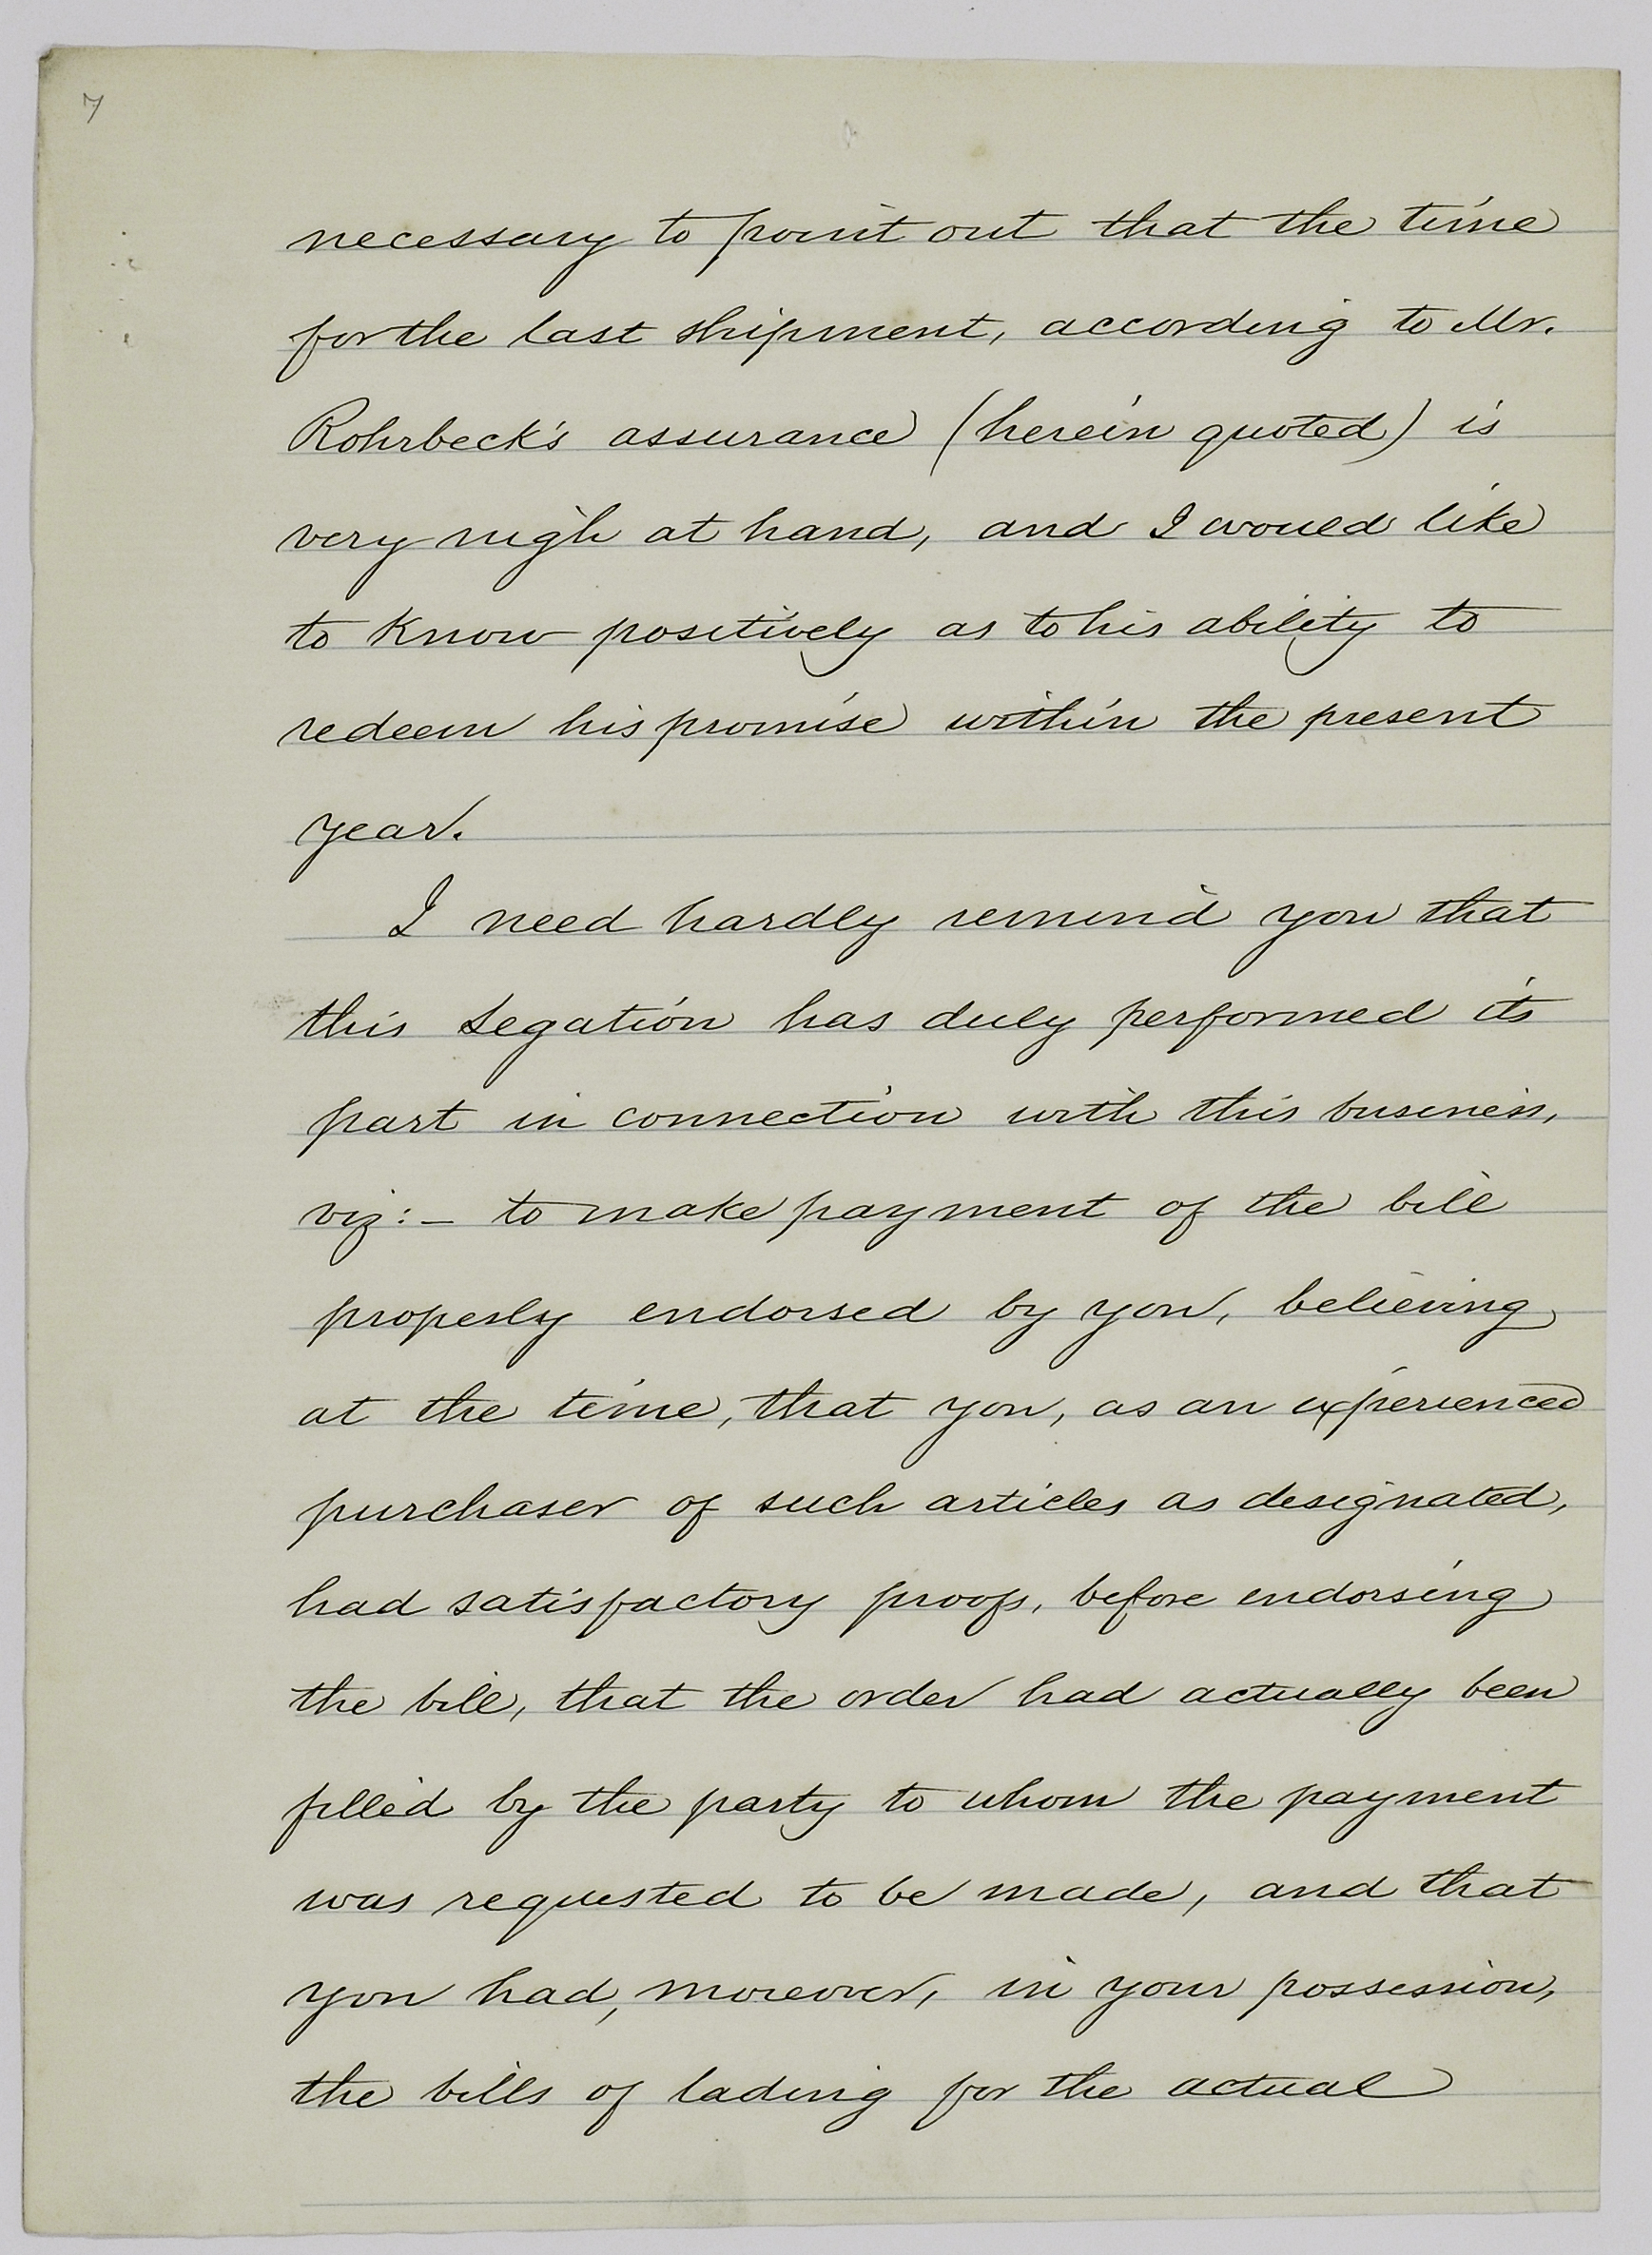 7
necessary to point out that the time
for the last shipment, according to Mr.
Rohrbeck's assurance (herein quoted) is
very nigh at hand, and I would like
to know positively as to his ability to
redeem his promise within the present
year.
I need hardly remind you that
this Legation has duly performed its
part in connection with this business,
viz:- to make payment of the bill
properly endorsed by you, believing
at the time, that you, as an experienced
purchaser of such articles as designated,
had satisfactory proofs, before endorsing
the bill, that the order had actually been
filled by the party to whom the payment
was requested to be made, and that
you had, moreover, in your possession,
the bills of lading for the actual